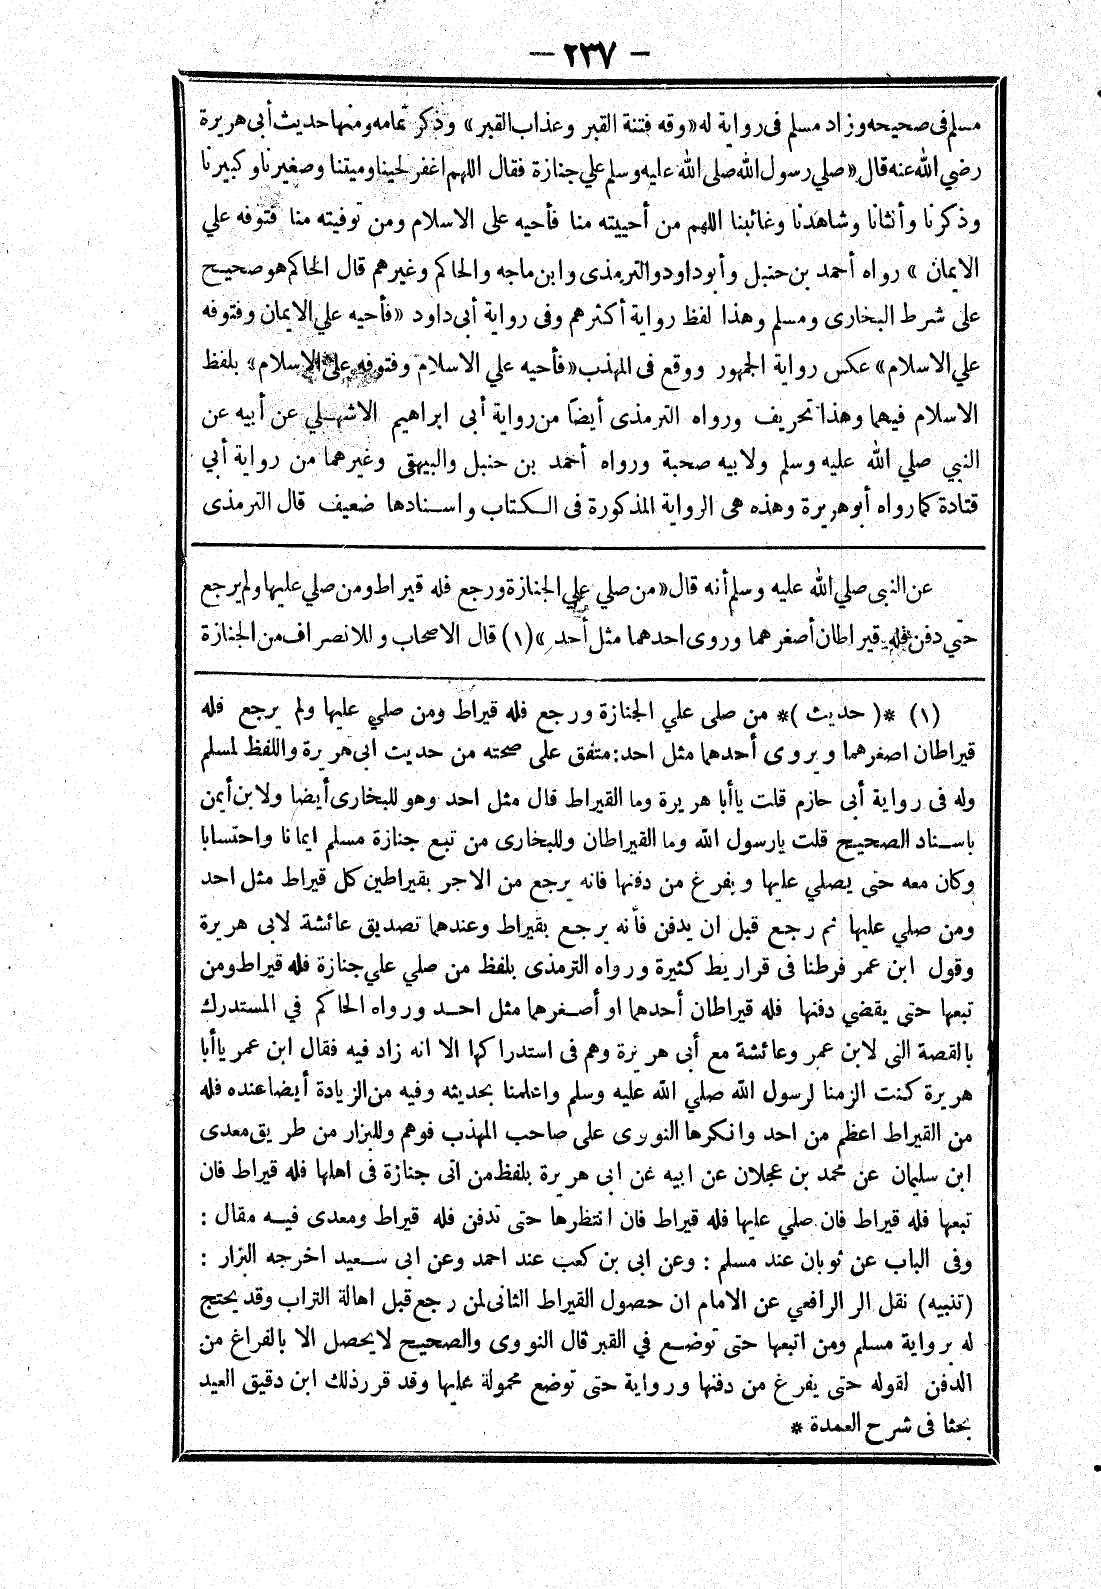 — ٢٣٧ —
مسلم فى صحيحه وزاد مسلم فى رواية له «وقه فتنة القبر وعذاب القبر» وذكر تمامه ومنها حديث أبى هريرة
رضي الله عنه قال «صلي رسول الله صلى الله عليه وسلم علي جنازة فقال اللهم اغفر لحينا وميتنا وصغيرنا وكبيرنا
وذكرنا وأنثانا وشاهدنا وغائبنا اللهم من أحييته منا فأحيه على الاسلام ومن توفيته منا فتوفه علي
الايمان » رواه أحمد بن حنبل وأبو داود والترمذى وابن ماجه والحاكم وغيرهم قال الحاكم هو صحيح
على شرط البخارى ومسلم وهذا لفظ رواية أكثرهم وفى رواية أبى داود «فأحيه علي الايمان وفتوفه
علي الاسلام» عكس رواية الجمهور ووقع فى المهذب «فأحيه علي الاسلام وفتوفه على الاسلام» بلفظ
الاسلام فيهما وهذا تحريف ورواه الترمذى أيضا من رواية أبى ابراهيم الاشهلي عن أبيه عن
النبي صلي الله عليه وسلم ولابيه صحبة ورواه أحمد بن حنبل والبيهقى وغيرهما من رواية أبي
قتادة كما رواه أبو هريرة وهذه هى الرواية المذكورة فى الكتاب واسنادها ضعيف قال الترمذى
عن النبى صلي الله عليه وسلم أنه قال «من صلي علي الجنازة ورجع فله قيراط ومن صلي عليها ولم يرجع
حتي دفن فله قيراطان أصغرهما وروى احدهما مثل أحد »(١) قال الاصحاب وللانصراف من الجنازة
(١) *( حديث )* من صلى علي الجنازة ورجع فله قيراط ومن صلي عليها ولم يرجع فله
قيراطان اصغرهما ويروى أحدهما مثل احد: متفق على صحته من حديث ابى هريرة واللفظ لمسلم
وله فى رواية أبى حازم قلت ياأبا هريرة وما القيراط قال مثل احد وهو للبخارى أيضا ولابن أيمن
باسناد الصحيح قلت يارسول الله وما القيراطان وللبخارى من تبع جنازة مسلم ايمانا واحتسابا
وكان معه حتى يصلي عليها ويفرغ من دفنها فانه يرجع من الاجر بقيراطين كل قيراط مثل احد
ومن صلي عليها ثم رجع قبل ان يدفن فأنه يرجع بقيراط وعندهما تصديق عائشة لابى هريرة
وقول ابن عمر فرطنا فى قراريط كثيرة ورواه الترمذى بلفظ من صلي علي جنازة فله قيراط ومن
تبعها حتى يقضي دفنها فله قيراطان أحدهما او أصغرهما مثل احد ورواه الحاكم في المستدرك
بالقصة التى لابن عمر وعائشة مع أبى هريرة وهم فى استدراكها الا انه زاد فيه فقال ابن عمر ياأبا
هريرة كنت الزمنا لرسول الله صلي الله عليه وسلم واعلمنا بحديثه وفيه من الزيادة أيضا عنده فله
من القيراط اعظم من احد وانكرها النورى على صاحب المهذب فوهم وللبزار من طريق معدى
ابن سليمان عن محمد بن عجلان عن ابيه عن ابى هريرة بلفظ من اتى جنازة فى اهلها فله قيراط فان
تبعها فله قيراط فان صلي عليها فله قيراط فان انتظرها حتى تدفن فله قيراط ومعدى فيه مقال :
وفى الباب عن ثوبان عند مسلم : وعن ابى بن كعب عند احمد وعن ابى سعيد اخرجه البزار :
(تنبيه) نقل الر الرافعي عن الامام ان حصول القيراط الثانى لمن رجع قبل اهالة التراب وقد يحتج
له برواية مسلم ومن اتبعها حتى توضع في القبر قال النووى والصحيح لايحصل الا بالفراغ من
الدفن لقوله حتى يفرغ من دفنها ورواية حتى توضع محمولة عليها وقد قرر ذلك ابن دقيق العيد
بحثا فى شرح العمدة *